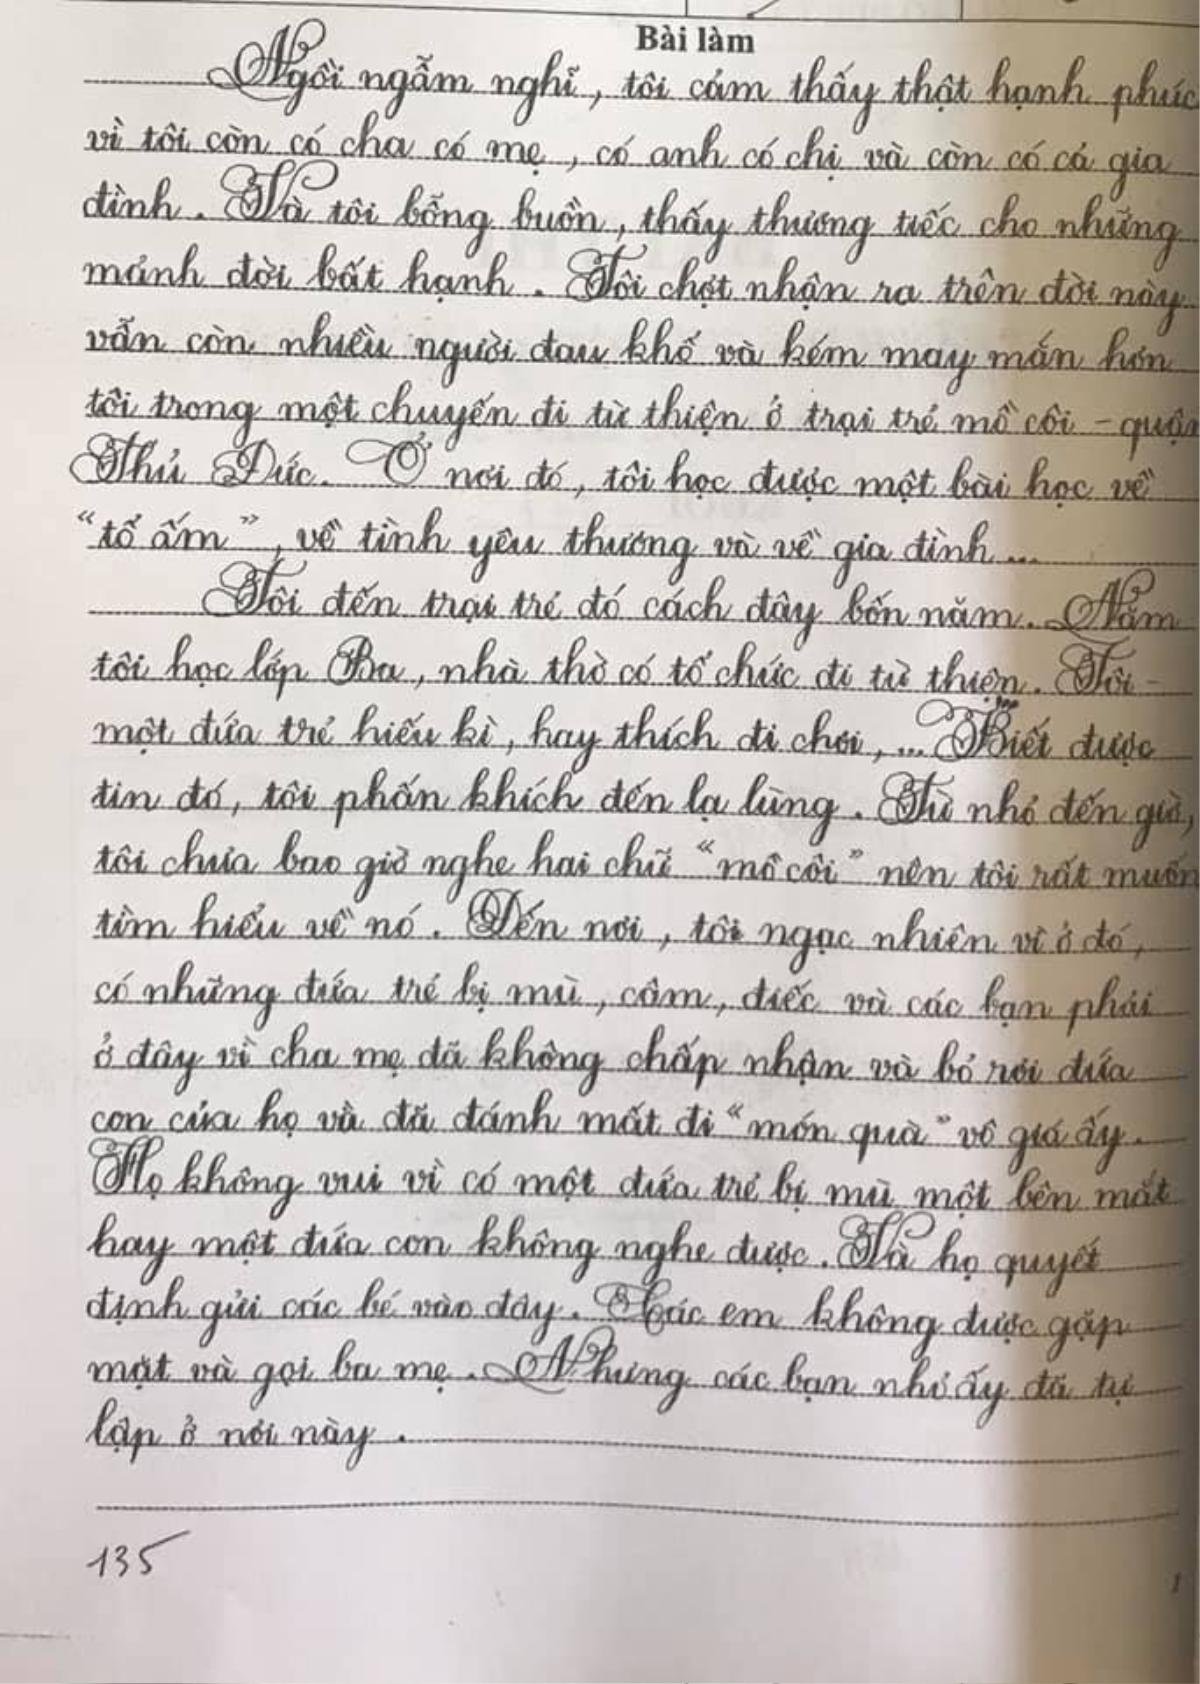 Bài làm
Ngồi ngẫm nghĩ, tôi cảm thấy thật hạnh phúc
vì tôi còn có cha có mẹ, có anh có chị và còn có cả gia
đình. Và tôi bỗng buồn, thấy thương tiếc cho những
mảnh đời bất hạnh. Tôi chợt nhận ra trên đời này
vẫn còn nhiều người đau khổ và kém may mắn hơn
tôi trong một chuyến đi từ thiện ở trại trẻ mồ côi - quận
Thủ Đức. Ở nơi đó, tôi học được một bài học về
"tổ ấm", về tình yêu thương và về gia đình...
Tôi đến trại trẻ đó cách đây bốn năm. Năm
tôi học lớp Ba, nhà thờ có tổ chức đi từ thiện. Tôi -
một đứa trẻ hiếu kì, hay thích đi chơi,... Biết được
tin đó, tôi phấn khích đến lạ lùng. Từ nhỏ đến giờ,
tôi chưa bao giờ nghe hai chữ "mồ côi" nên tôi rất muốn
tìm hiểu về nó. Đến nơi, tôi ngạc nhiên vì ở đó,
có những đứa trẻ bị mù, câm, điếc và các bạn phải
ở đây vì cha mẹ đã không chấp nhận và bỏ rơi đứa
con của họ và đã đánh mất đi "món quà" vô giá ấy.
Họ không vui vì có một đứa trẻ bị mù một bên mắt
hay một đứa con không nghe được. Và họ quyết
định gửi các bé vào đây. Các em không được gặp
mặt và gọi ba mẹ. Nhưng các bạn nhỏ ấy đã tự
lập ở nơi này.
135
1